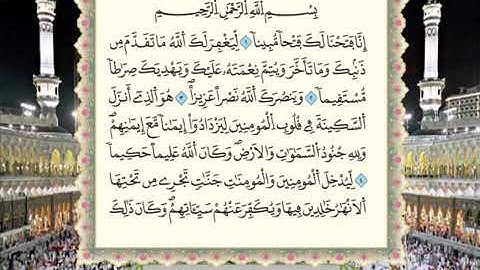 بِسْمِ اللَّهِ الرَّحْمَٰنِ الرَّحِيمِ
إِنَّا فَتَحْنَا لَكَ فَتْحًا مُّبِينًا ۝١ لِّيَغْفِرَ لَكَ اللَّهُ مَا تَقَدَّمَ مِن
ذَنۢبِكَ وَمَا تَأَخَّرَ وَيُتِمَّ نِعْمَتَهُ عَلَيْكَ وَيَهْدِيَكَ صِرَاطًا
مُّسْتَقِيمًا ۝٢ وَيَنصُرَكَ اللَّهُ نَصْرًا عَزِيزًا ۝٣ هُوَ الَّذِي أَنزَلَ
السَّكِينَةَ فِي قُلُوبِ الْمُؤْمِنِينَ لِيَزْدَادُوا إِيمَانًا مَّعَ إِيمَانِهِمْ
وَلِلَّهِ جُنُودُ السَّمَاوَاتِ وَالْأَرْضِ وَكَانَ اللَّهُ عَلِيمًا حَكِيمًا
۝٤ لِّيُدْخِلَ الْمُؤْمِنِينَ وَالْمُؤْمِنَاتِ جَنَّاتٍ تَجْرِي مِن تَحْتِهَا
الْأَنْهَارُ خَالِدِينَ فِيهَا وَيُكَفِّرَ عَنْهُمْ سَيِّئَاتِهِمْ وَكَانَ ذَٰلِكَ